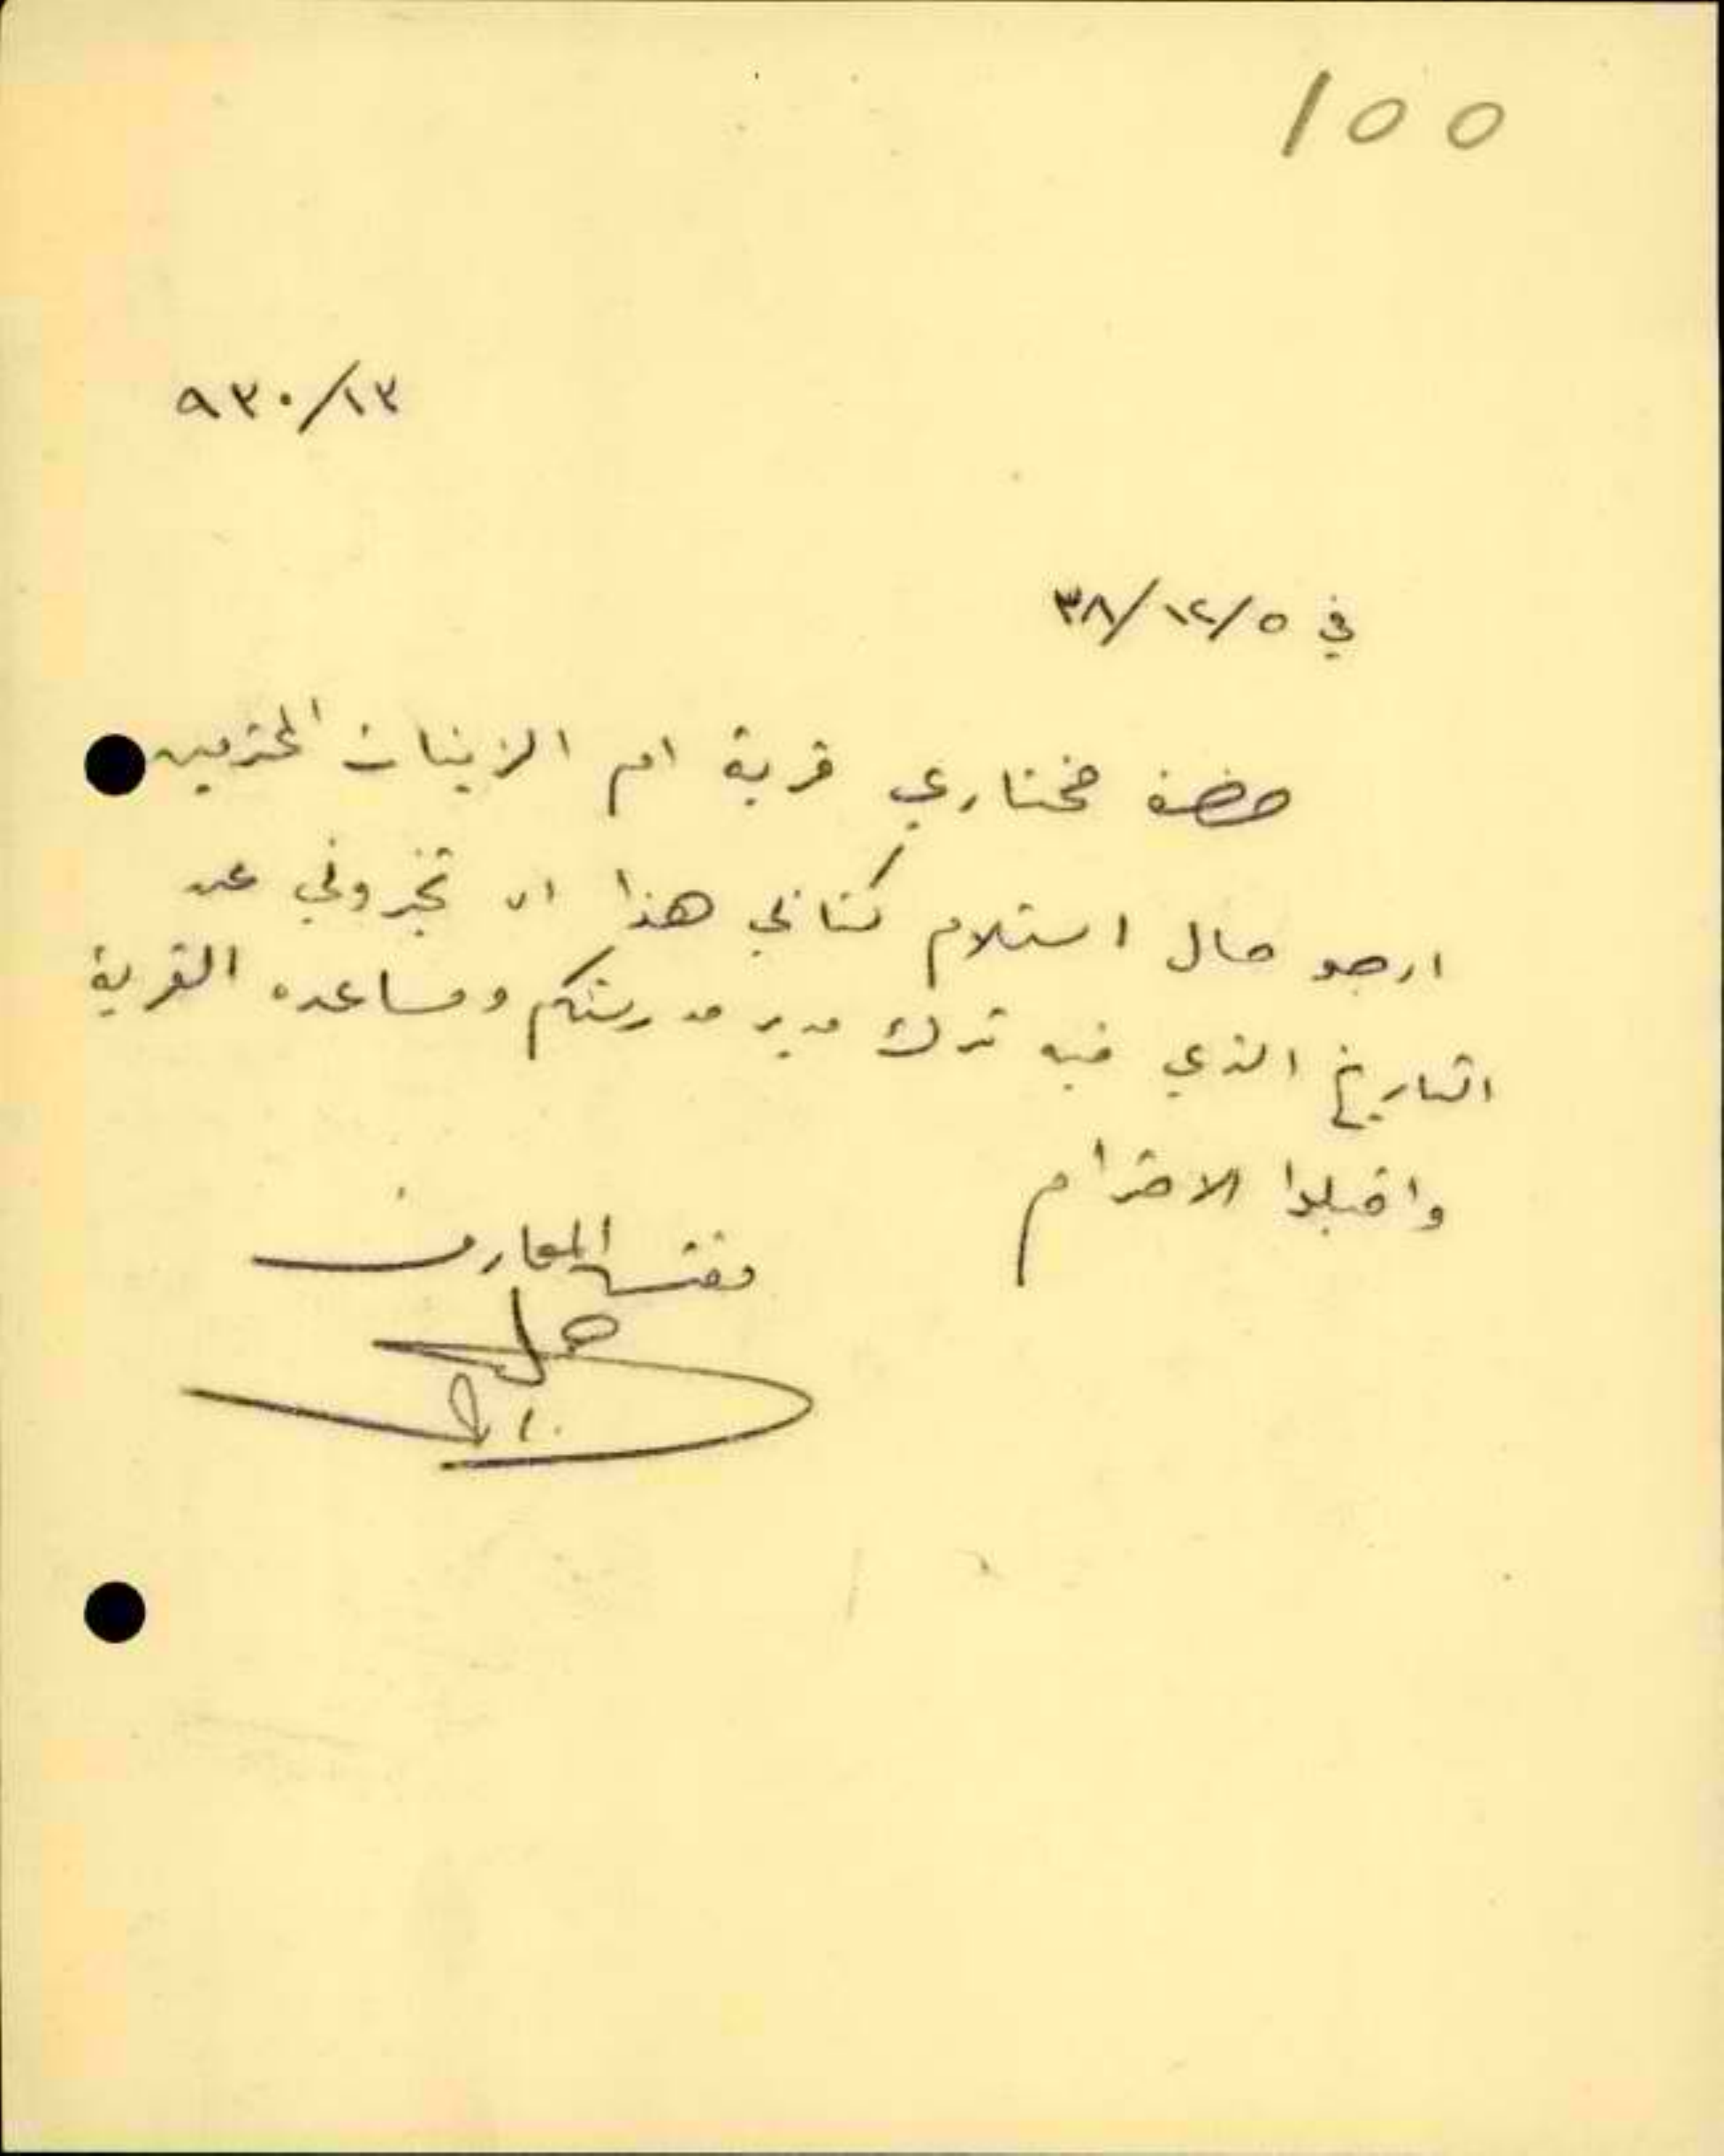 100
٩٣٠/١٣
في ٥/١٢/٣٨
حضرة مختاري قرية ام الزينات المحترمين
ارجو حال استلام كتابي هذا ان تخبروني عن
التاريخ الذي فيه ترك مدير مدرستكم ومساعده القرية
واقبلوا الاحترام
مفتش المعارف